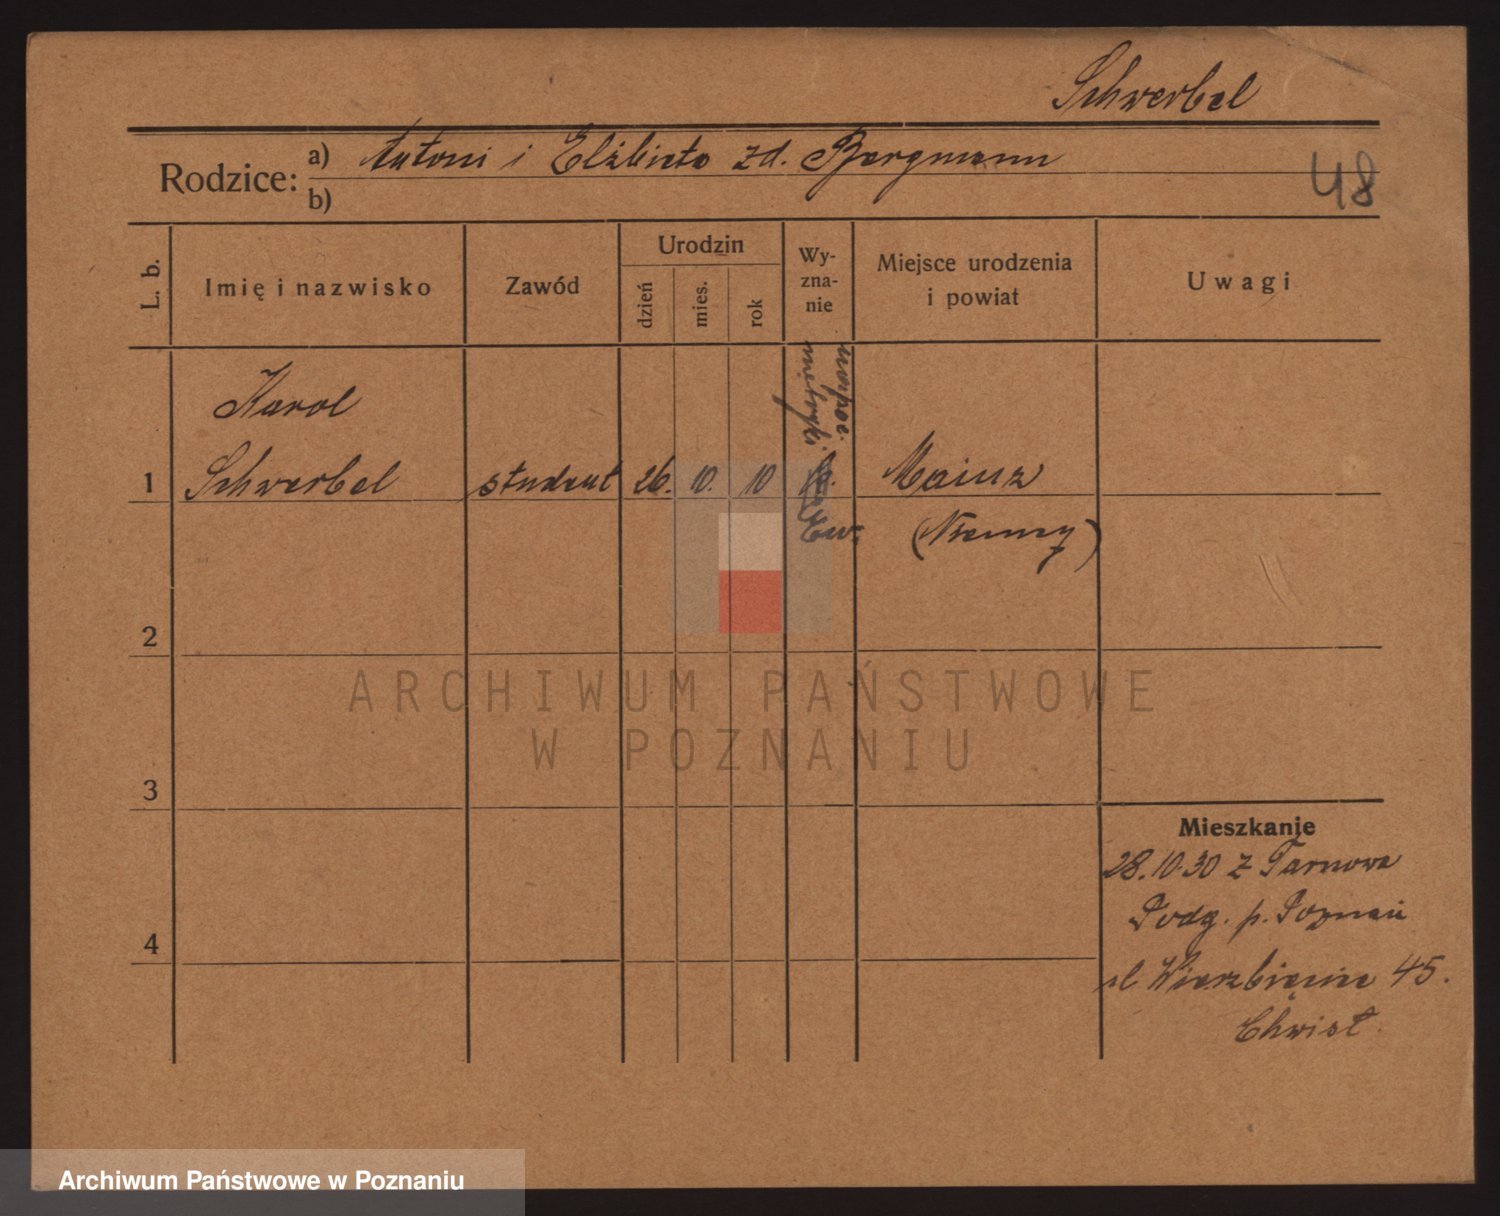 Schwerbel
Rodzice: a) Antoni i Elżbieta zd. Bergmann
b)
48
L. b.
Imię i nazwisko
Zawód
Urodzin
dzień
mies.
rok
Wy-
zna-
nie
Miejsce urodzenia
i powiat
Uwagi
metryki
Karol
1 Schwerbel student 26. 10. 10 Mainz
Ew. (Niemcy)
2
ARCHIWUM PAŃSTWOWE
W POZNANIU
3
4
Mieszkanie
28.10.30 z Tarnowa
Podg. p. Poznań
ul Wierzbięcice 45.
Chwist.
Archiwum Państwowe w Poznaniu